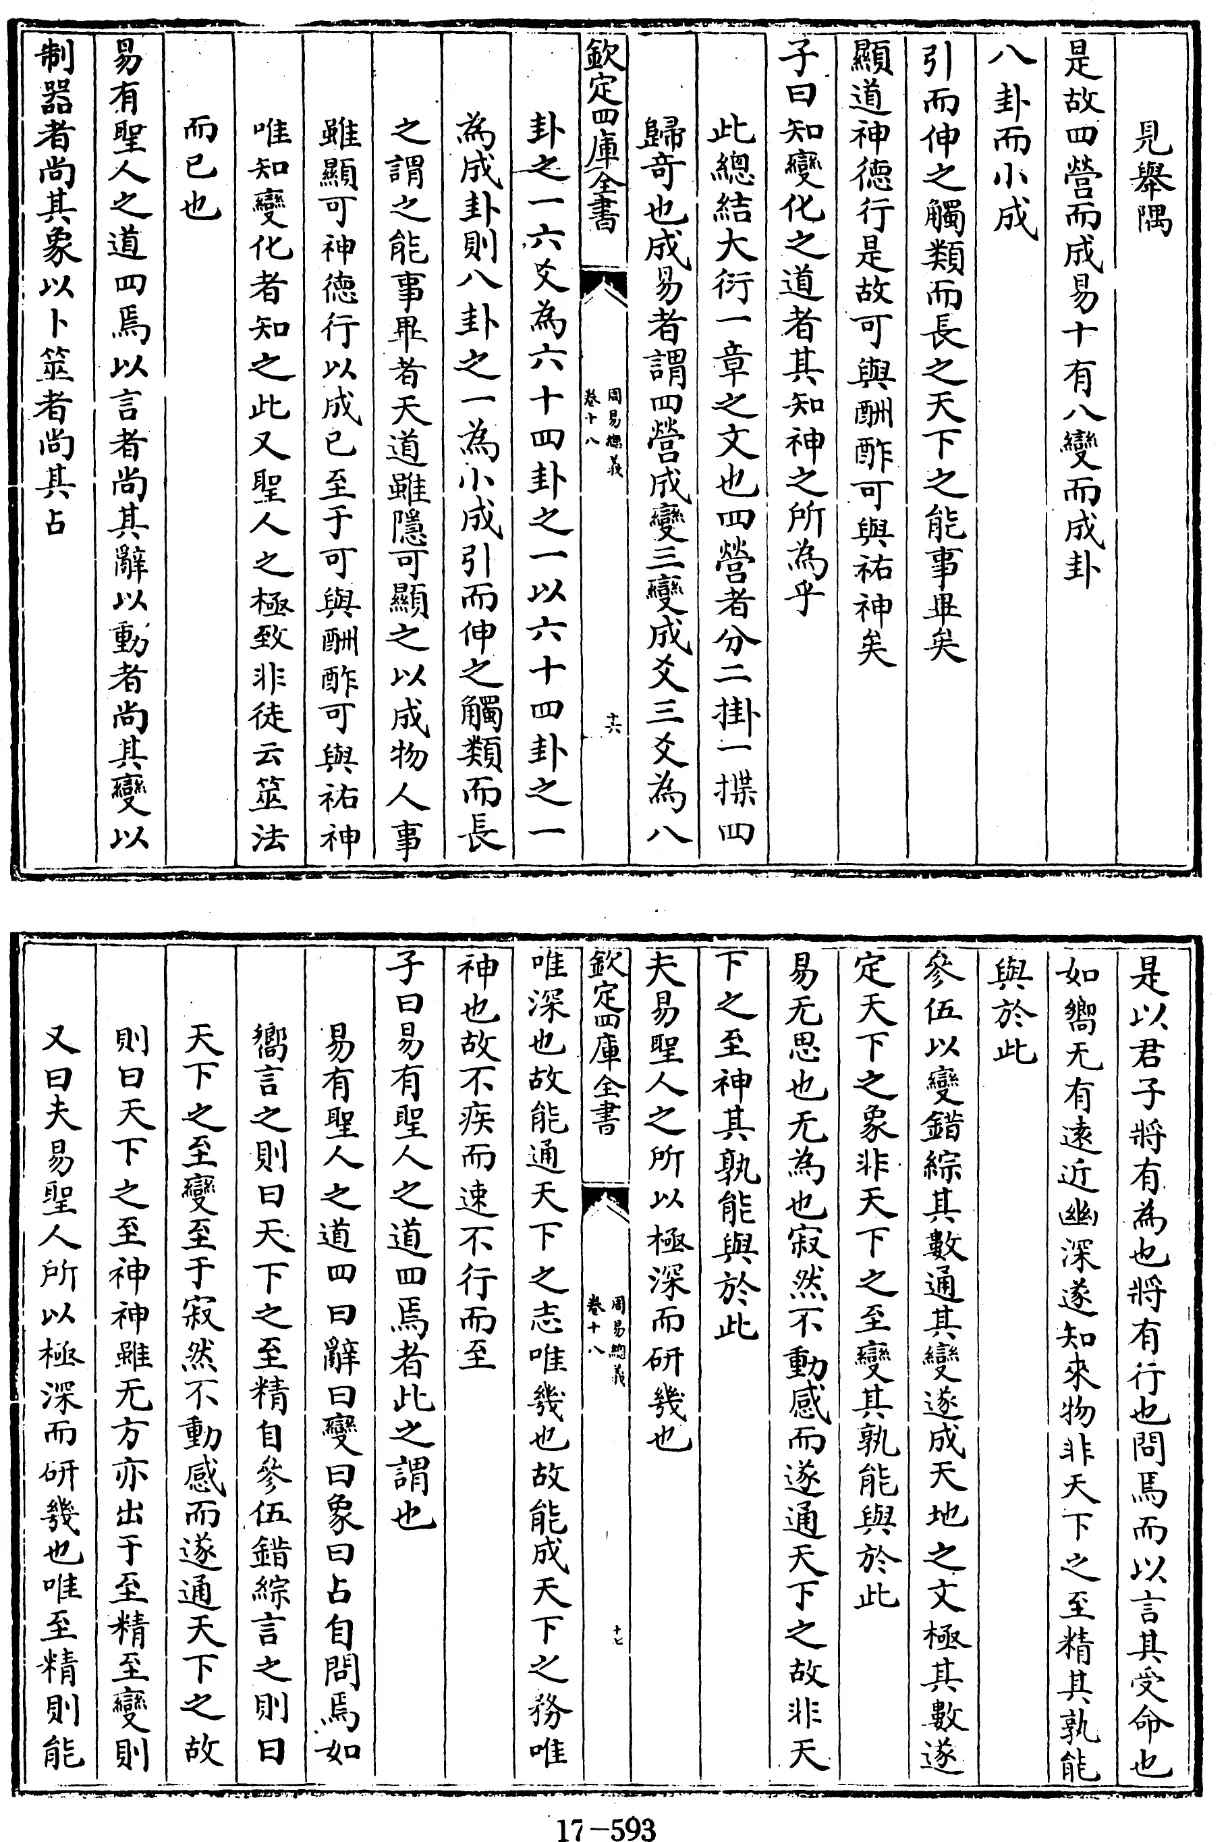 見舉隅
是故四營而成易十有八變而成卦
八卦而小成
引而伸之觸類而長之天下之能事畢矣
顯道神德行是故可與酬酢可與祐神矣
子曰知變化之道者其知神之所為乎
此總結大衍一章之文也四營者分二掛一揲四
歸奇也成易者謂四營成變三變成爻三爻為八
欽定四庫全書
周易總義
卷十八
十六
卦之一六爻為六十四卦之一以六十四卦之一
為成卦則八卦之一為小成引而伸之觸類而長
之謂之能事畢者天道雖隱可顯之以成物人事
雖顯可神德行以成已至于可與酬酢可與祐神
唯知變化者知之此又聖人之極致非徒云筮法
而已也
易有聖人之道四焉以言者尚其辭以動者尚其變以
制器者尚其象以卜筮者尚其占
是以君子將有為也將有行也問焉而以言其受命也
如嚮无有遠近幽深遂知來物非天下之至精其孰能
與於此
參伍以變錯綜其數通其變遂成天地之文極其數遂
定天下之象非天下之至變其孰能與於此
易无思也无為也寂然不動感而遂通天下之故非天
下之至神其孰能與於此
夫易聖人之所以極深而研幾也
欽定四庫全書
周易總義
卷十八
十七
唯深也故能通天下之志唯幾也故能成天下之務唯
神也故不疾而速不行而至
子曰易有聖人之道四焉者此之謂也
易有聖人之道四曰辭曰變曰象曰占自問焉如
嚮言之則曰天下之至精自參伍錯綜言之則曰
天下之至變至于寂然不動感而遂通天下之故
則曰天下之至神神雖无方亦出于至精至變則
又曰夫易聖人所以極深而研幾也唯至精則能
17-593